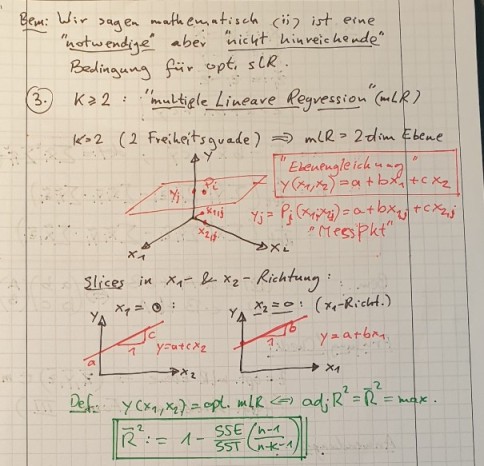 Bem: Wir sagen mathematisch (ii) ist eine
"notwendige" aber "nicht hinreichende"
Bedingung für opt. sLR.
3. K ≥ 2 : "multiple Lineare Regression" (mLR)
K=2 (2 Freiheitsgrade) ⟹ mLR = 2dim Ebene
"Ebenengleichung"
y(x₁,x₂) = a + bx₁ + cx₂
y
yⱼ
Pⱼ
x₁,ⱼ
x₂,ⱼ
x₁
x₂
yⱼ = Pⱼ(x₁,ⱼ, x₂,ⱼ) = a + bx₁,ⱼ + cx₂,ⱼ
"MessPkt"
Slices in x₁- & x₂-Richtung:
x₁ = 0 :
x₂ = 0 : (x₁-Richt.)
y
c
1
a
y = a + cx₂
x₂
y
b
1
y = a + bx₁
x₁
Def: y(x₁,x₂) = opt. mLR ⟺ adj R² = R̄² = max.
R̄² := 1 - SSE/SST (n-1/n-k-1)